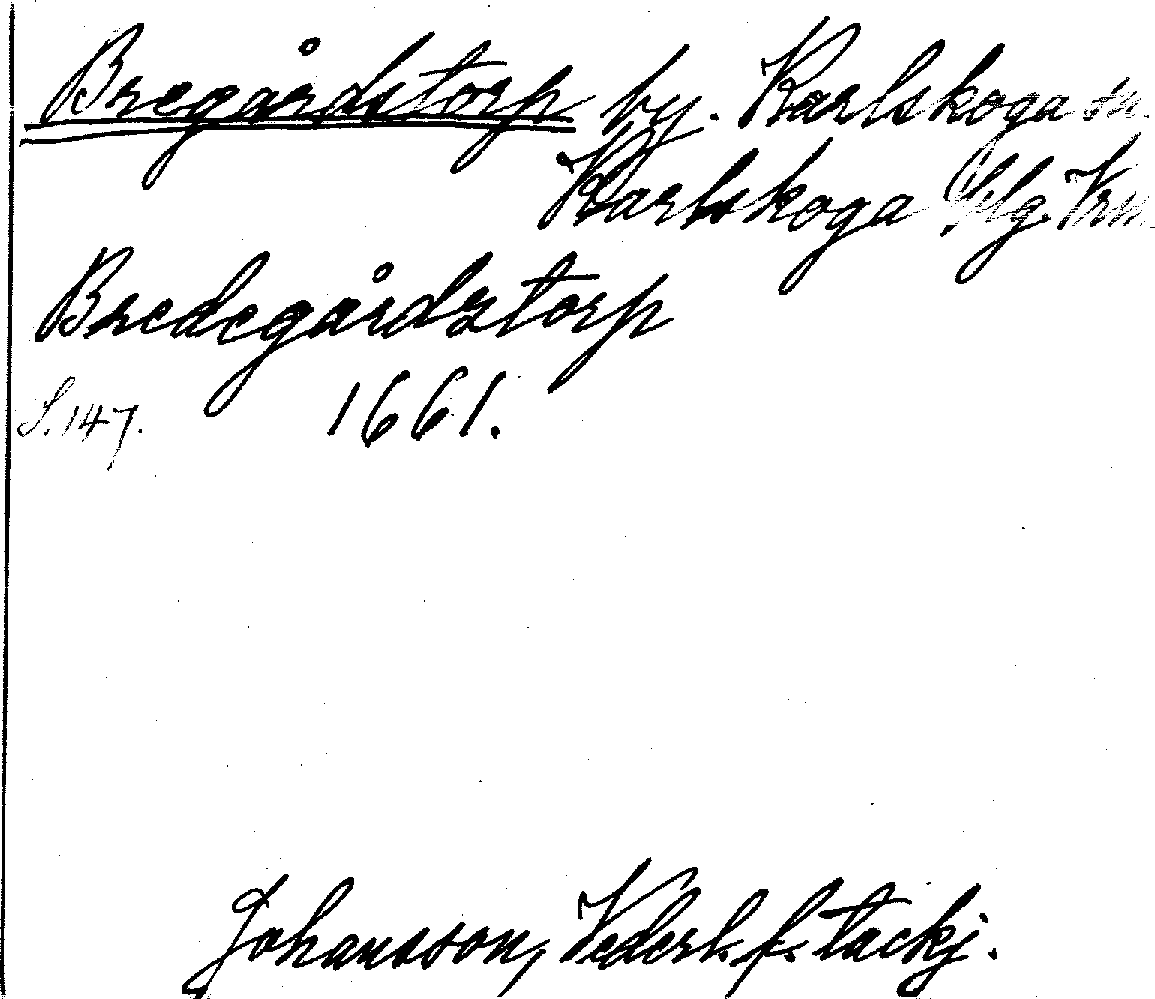 Bregårdstorp by. Karlskoga sn.
Karlskoga blg. Vrm.
Bredegårdztorp
S. 147. 1661.
Johansson, Vederl. f. tackj.